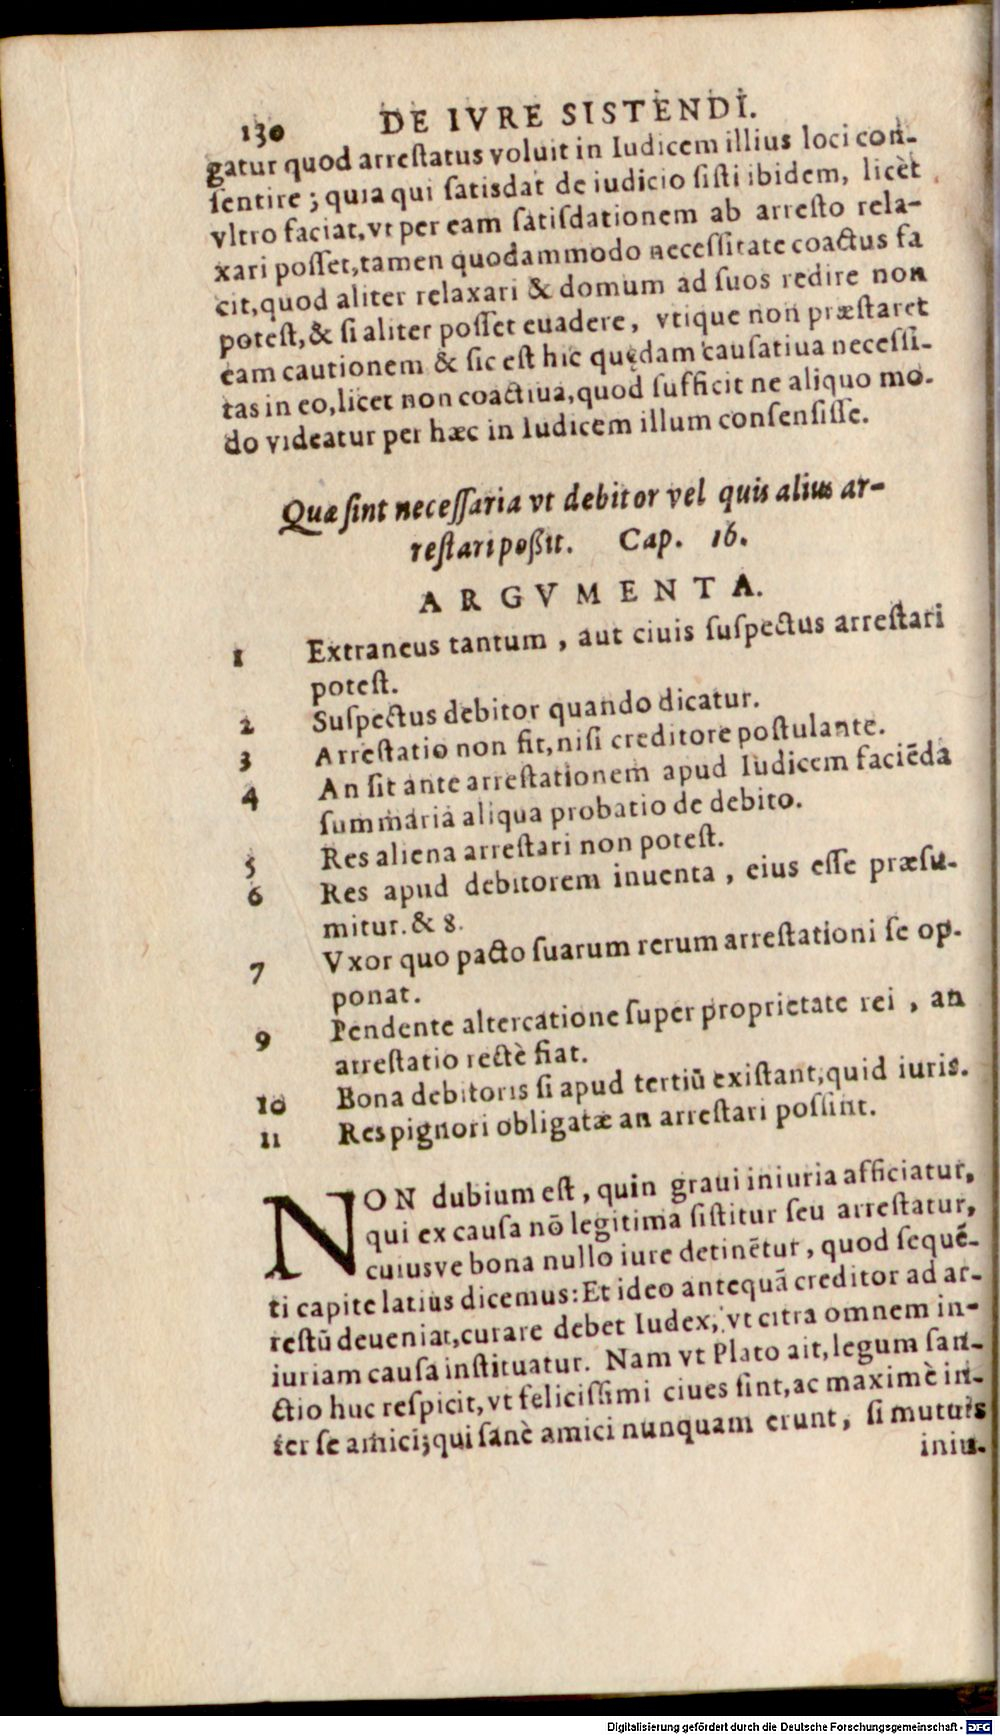 130 DE IVRE SISTENDI.
gatur quod arreſtatus voluit in Iudicem illius loci con-
ſentire; quia qui ſatisdat de iudicio ſiſti ibidem, licèt
vltro faciat, vt per eam ſatiſdationem ab arreſto rela-
xari poſſet, tamen quodammodo neceſſitate coactus fa
cit, quod aliter relaxari & domum ad ſuos redire non
poteſt, & ſi aliter poſſet euadere, vtique non præſtaret
eam cautionem & ſic eſt hic quędam cauſatiua neceſſi-
tas in eo, licet non coactiua, quod ſufficit ne aliquo mo-
do videatur per hæc in Iudicem illum conſenſiſſe.
Quæ ſint neceſſaria vt debitor vel quis alius ar-
reſtari poßit. Cap. 16.
ARGVMENTA.
1 Extraneus tantum, aut ciuis ſuſpectus arreſtari
poteſt.
2 Suſpectus debitor quando dicatur.
3 Arreſtatio non fit, niſi creditore poſtulante.
4 An ſit ante arreſtationem apud Iudicem faciēda
ſummaria aliqua probatio de debito.
5 Res aliena arreſtari non poteſt.
6 Res apud debitorem inuenta, eius eſſe præſu-
mitur. & 8.
7 Vxor quo pacto ſuarum rerum arreſtationi ſe op-
ponat.
9 Pendente altercatione ſuper proprietate rei, an
arreſtatio rectè fiat.
10 Bona debitoris ſi apud tertiū exiſtant, quid iuris.
11 Res pignori obligatæ an arreſtari poſſint.
NON dubium eſt, quin graui iniuria afficiatur,
qui ex cauſa nō legitima ſiſtitur ſeu arreſtatur,
cuiusve bona nullo iure detinētur, quod ſequē-
ti capite latius dicemus: Et ideo antequā creditor ad ar-
reſtū deueniat, curare debet Iudex, vt citra omnem in-
iuriam cauſa inſtituatur. Nam vt Plato ait, legum ſan-
ctio huc reſpicit, vt feliciſſimi ciues ſint, ac maximè in-
ter ſe amici; qui ſanè amici nunquam erunt, ſi mutuis
iniu-
Digitalisierung gefördert durch die Deutsche Forschungsgemeinschaft - DFG